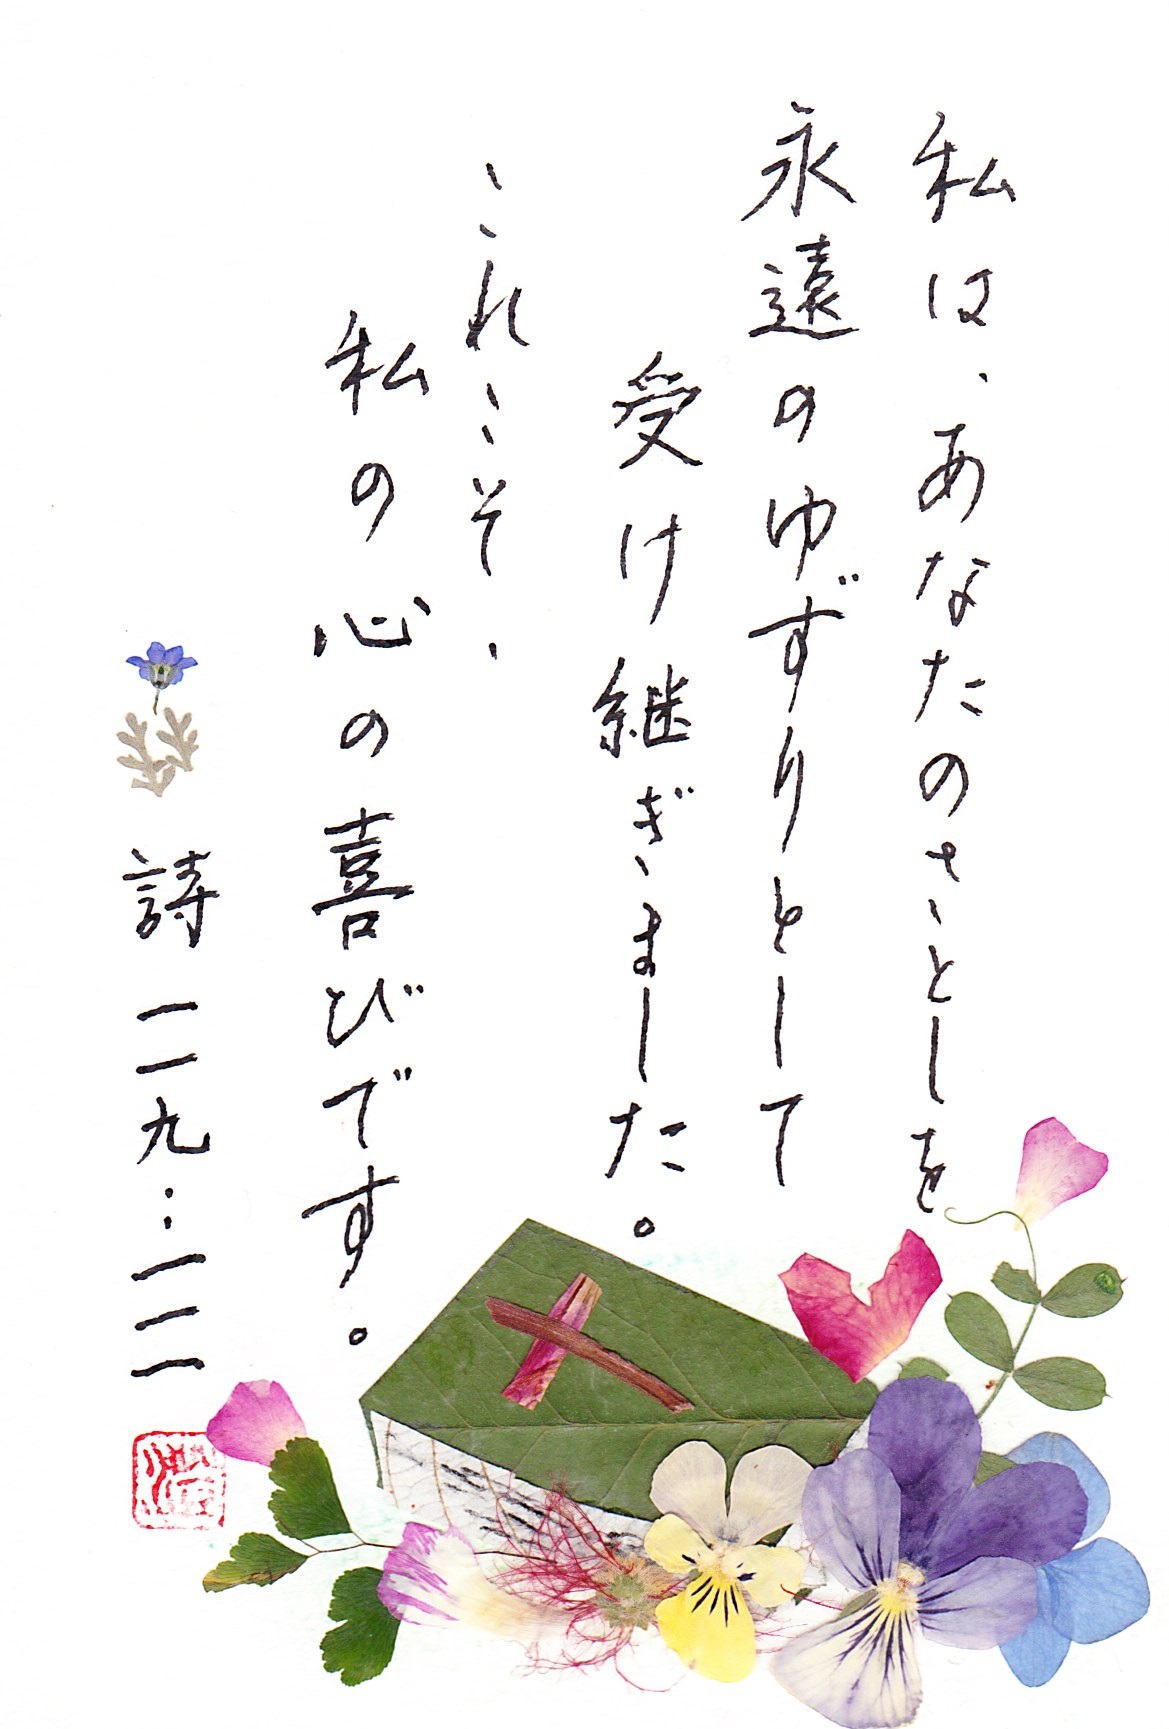 私は、あなたのさとしを
永遠のゆずりとして
受け継ぎました。
これこそ、
私の心の喜びです。
詩 一一九:一一一